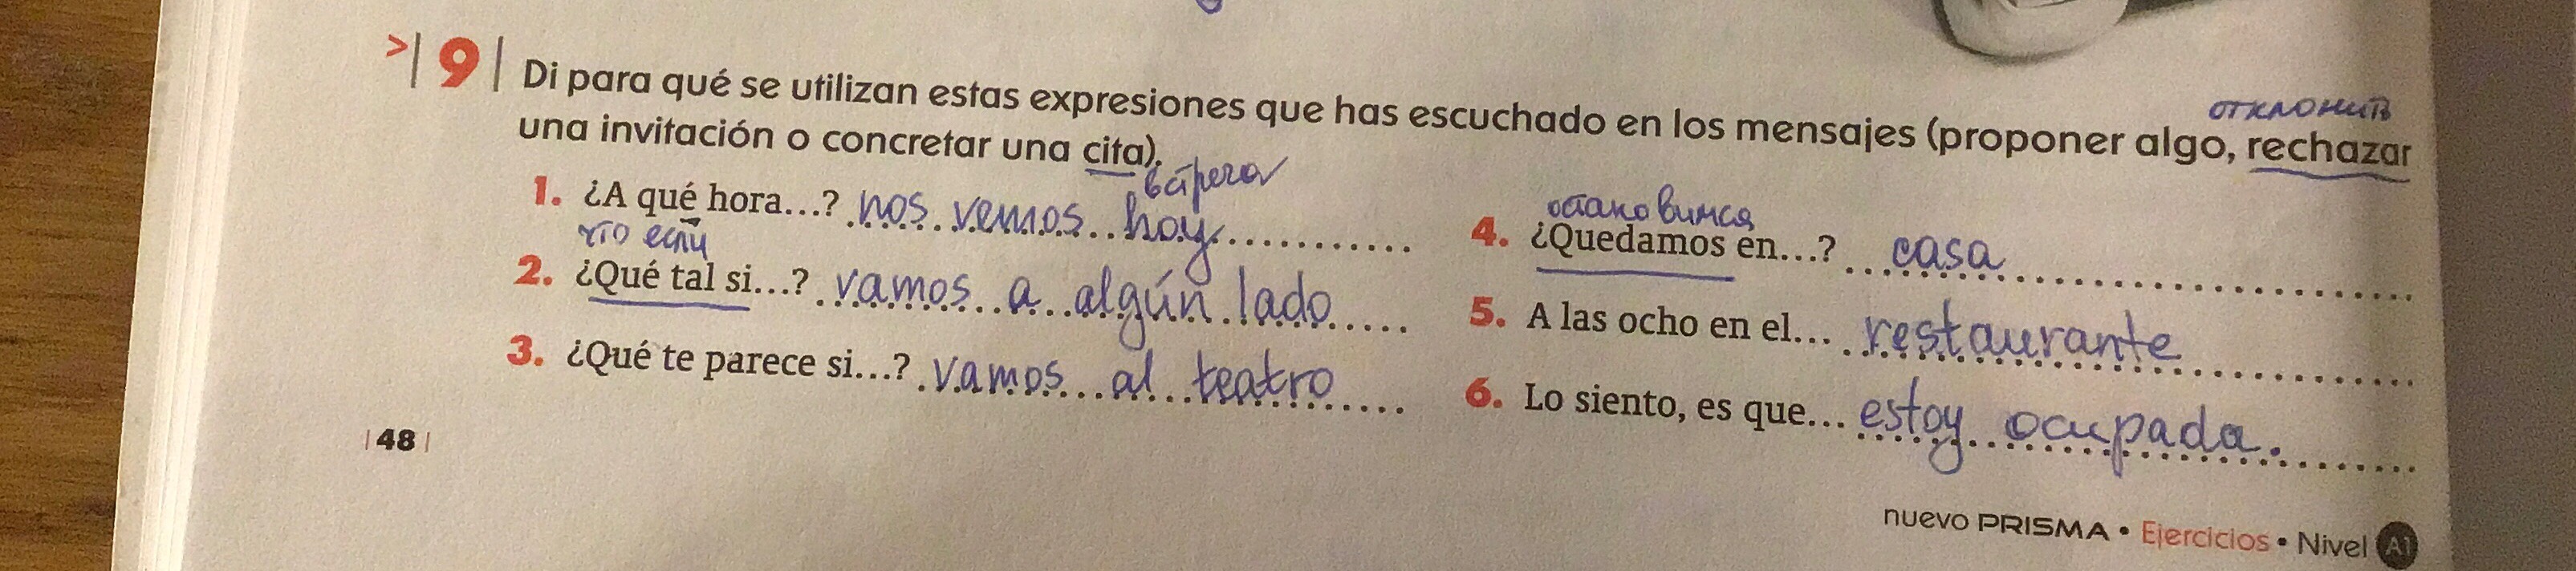 >| 9 | Di para qué se utilizan estas expresiones que has escuchado en los mensajes (proponer algo, rechazar
отклонить
una invitación o concretar una cita).
1. ¿A qué hora...? nos vemos hoy
что если
2. ¿Qué tal si...? vamos a algún lado
3. ¿Qué te parece si...? vamos al teatro
остановимся
4. ¿Quedamos en...? casa
5. A las ocho en el... restaurante
6. Lo siento, es que... estoy ocupada.
| 48 |
nuevo PRISMA • Ejercicios • Nivel A1